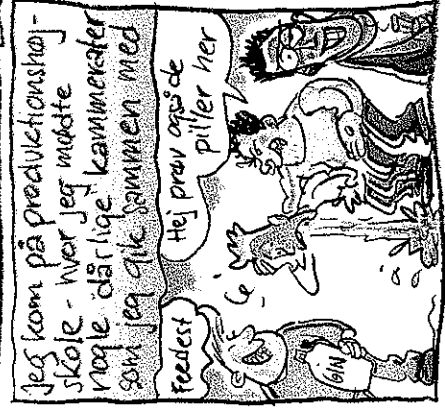 Jeg kom på produktionshøj-
skole - hvor jeg mødte
nogle dårlige kammerater
som jeg gik sammen med
Federt
Hej prøv også de
piller her
GIN